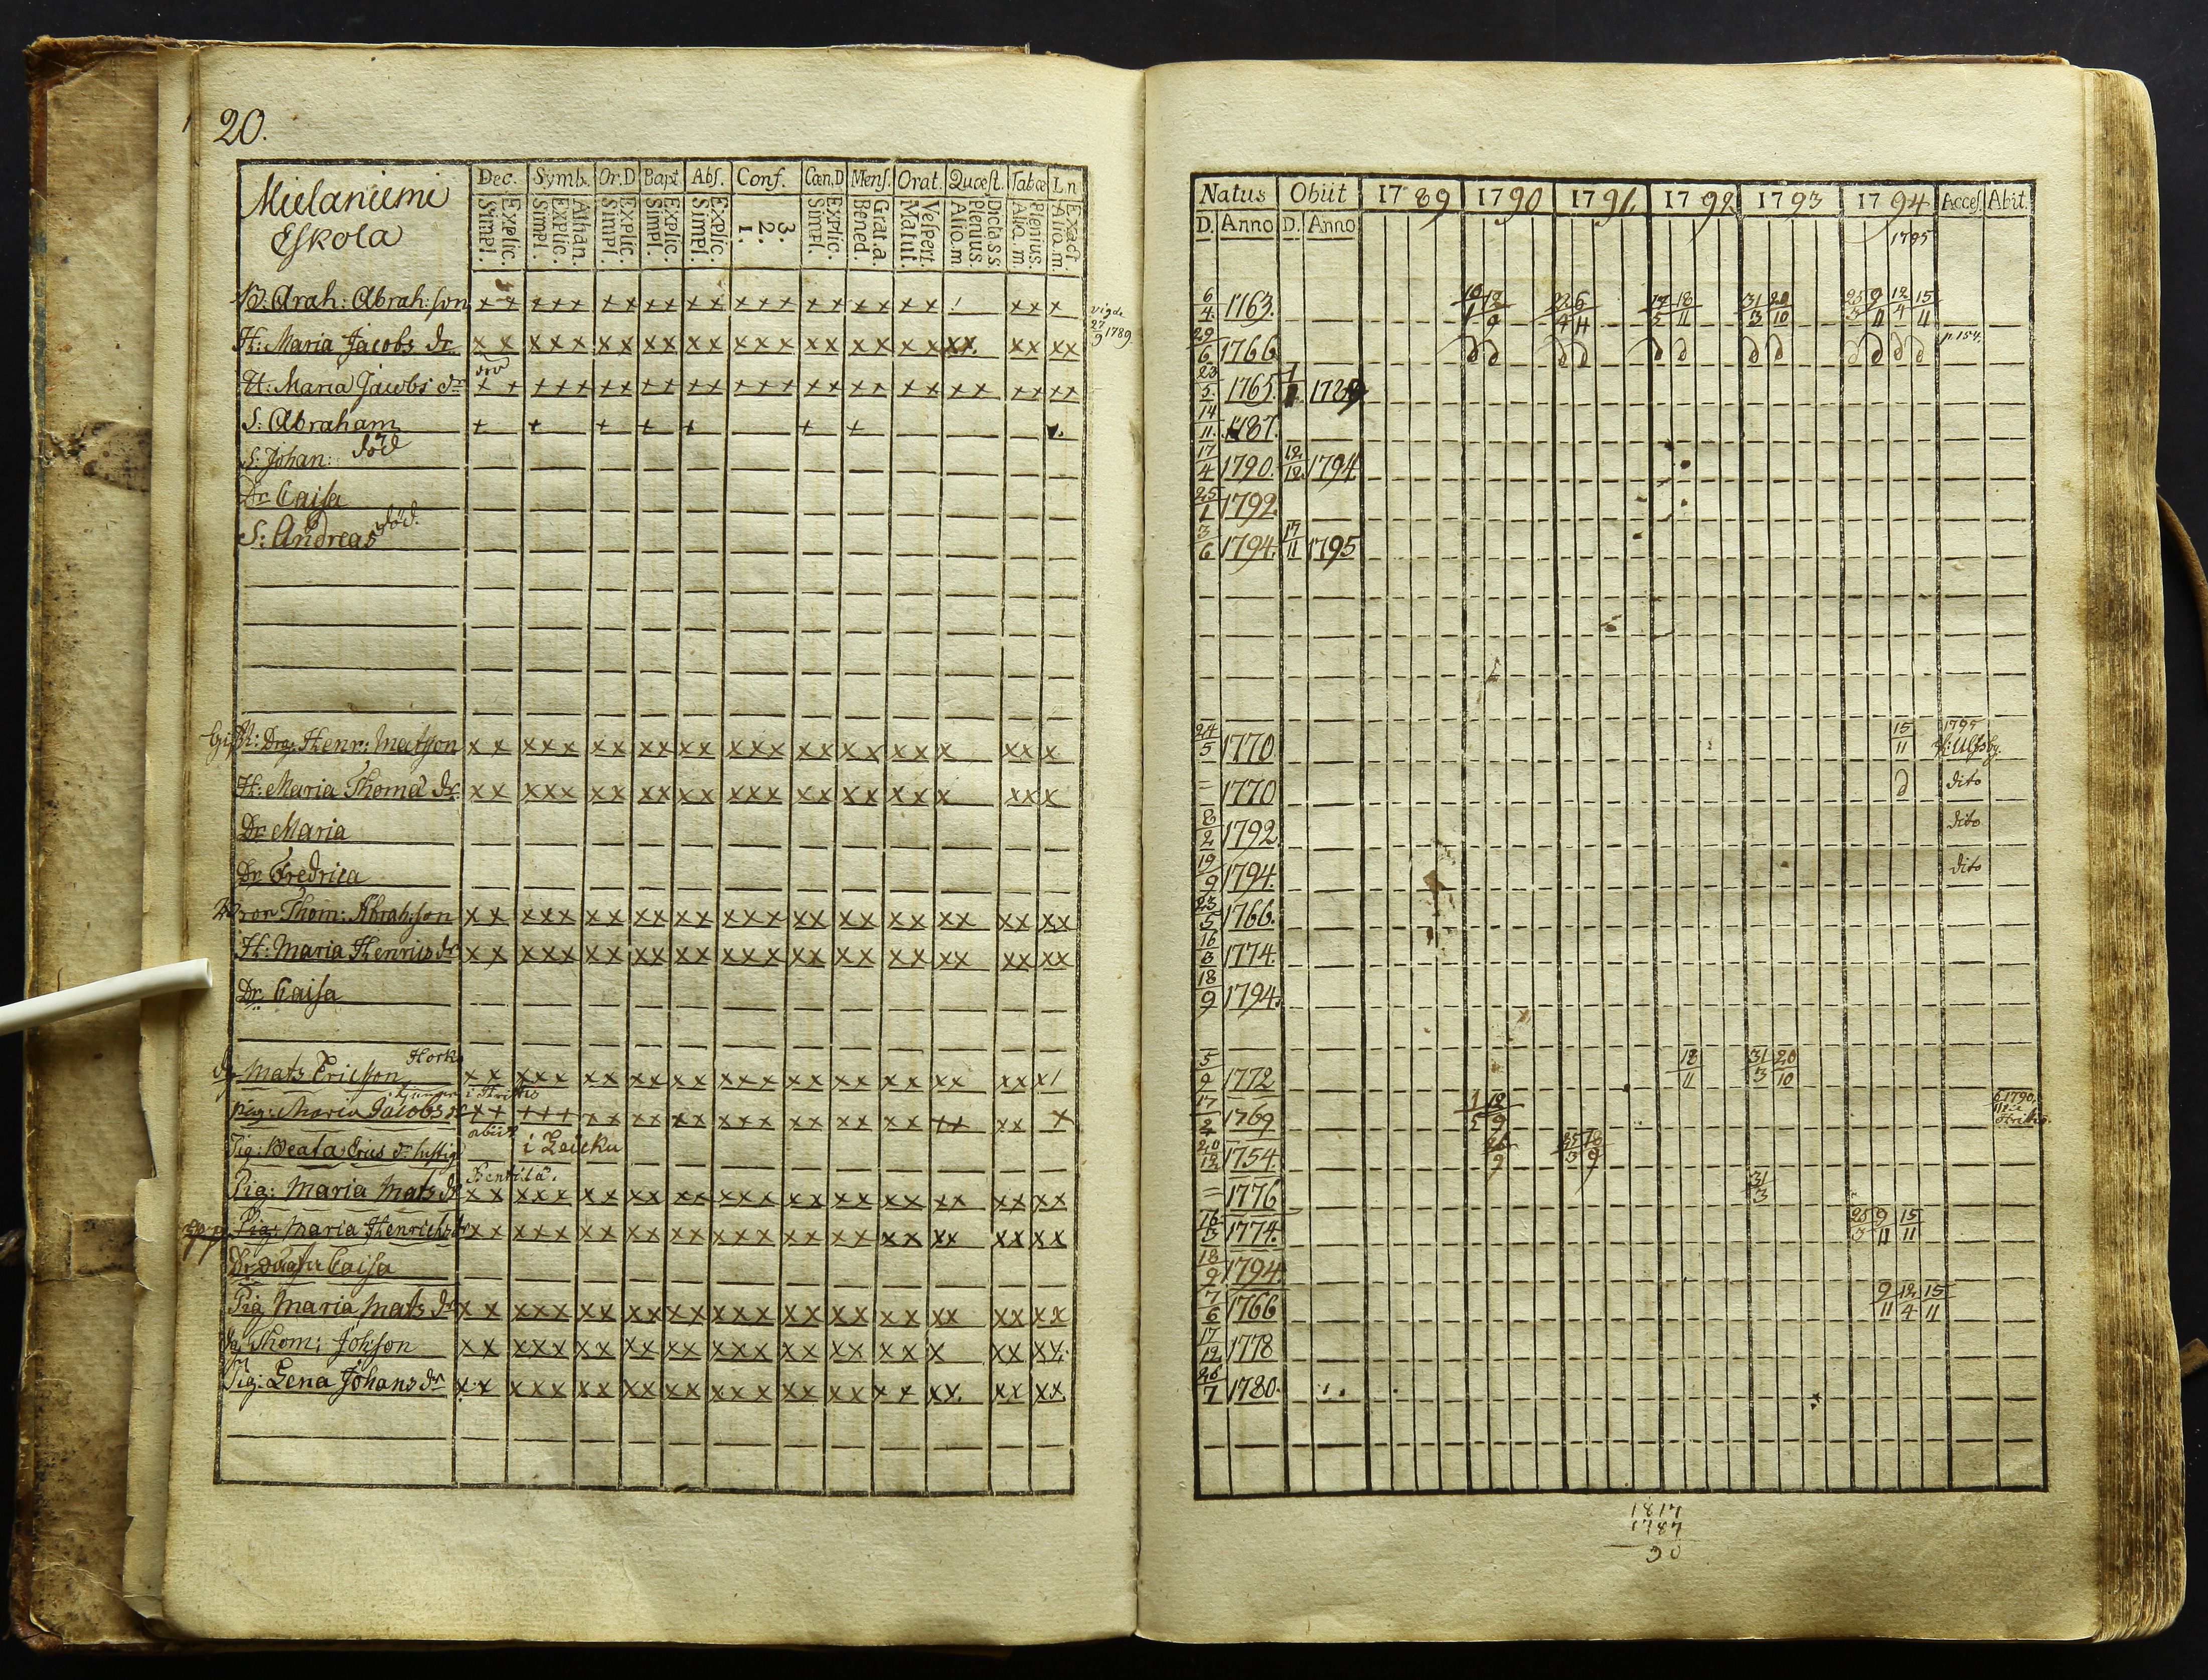 20.
Mielaniemi
Eskola
Dec. Symb. Or.D Bapt Abs. Conf. Cœn.D Mens. Orat. Quæst. Tabœ L.n
Simpl. Explic. Simpl. Explic. Athan. Simpl. Explic. Simpl. Explic. Simpl. Explic. 1. 2. 3. Simpl. Explic. Bened. Grat.a. Matut. Vespert. Alio.m. Plenius. Dicta s.s. Aliq.m. Plenius. Aliq.m. Exact.
B: Arah: Abrah:son x x x x x x x x x x x x x x x x x x x x ! x x x
vigde 27/9 1789
H: Maria Jacobs dr x x x x x x x x x x x x x x x x x x x x x x x x x x
död
H: Maria Jacobs dr + + + + + + + + + + + + + + + + + + + + + + + + + +
S: Abraham + + + + + + +
S: Johan: död
Dr Caisa
S: Andreas död.
N: Drg: Henr: Matsson x x x x x x x x x x x x x x x x x x x x x x x x
H: Maria Thoma dr x x x x x x x x x x x x x x x x x x x x x x x x
Dr Maria
Dr Fredrica
Bror Thom: Abrah:son x x x x x x x x x x x x x x x x x x x x x x x x x x
H: Maria Henrics dr x x x x x x x x x x x x x x x x x x x x x x x x x x
Dr. Caisa
Horks
Dg Mats Ericsson x x x x x x x x x x x x x x x x x x x x x x x x x /
Pig: Maria Jacobs dr x x x x x x x x x x x x x x x x x x x x x x x x x
abiit
Pig: Beata Erics dr i Leicku
Benttilä.
Pig: Maria Mats dr x x x x x x x x x x x x x x x x x x x x x x x x x x
Pig: Maria Henrichs dr x x x x x x x x x x x x x x x x x x x x x x x x x x
Dr Caisa
Pig Maria Mats dr x x x x x x x x x x x x x x x x x x x x x x x x x x
Dg Thom: Johsson x x x x x x x x x x x x x x x x x x x x x x x x x
Pig: Lena Johans dr x x x x x x x x x x x x x x x x x x x x x x x x x x
Natus Obiit 1789 1790 1791 1792 1793 1794 Acces. Abit.
D. Anno D. Anno
1795
6/4 1763. 10/1 12/9 22/4 6/4 17/5 18/11 31/3 20/10 25/3 9/11 12/4 15/11
29/6 1766 p.154.
23/5. 1765. 1789
14/11. 1787.
17/4 1790. 12/12. 1794
25/1 1792.
3/6 1794. 17/11 1795
24/5 1770 15/11 1795 Ulfsby.
= 1770 dito
8/2 1792. dito
19/9 1794. dito
23/5 1766.
16/3 1774.
18/9 1794.
5/9 1772 18/11 31/3 20/10
17/2 1769 1/5 12/9 1790.
20/12 1754. 26/9 25/3 18/9
= 1776 31/3
16/3 1774. 25/3 9/11 15/11
18/9 1794
7/6 1766 9/11 12/4 15/11
17/12 1778
26/7 1780.
1817
1787
30